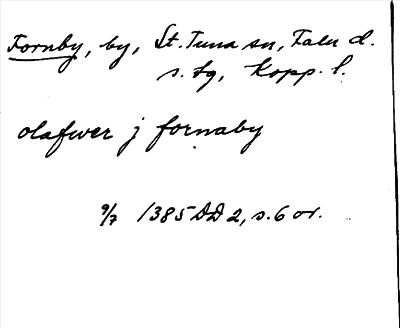 Fornby, by, St. Tuna sn, Falu d.
s. tg, Kopp. l.
olafwer j fornaby
9/7 1385 DD 2, s. 6 or.